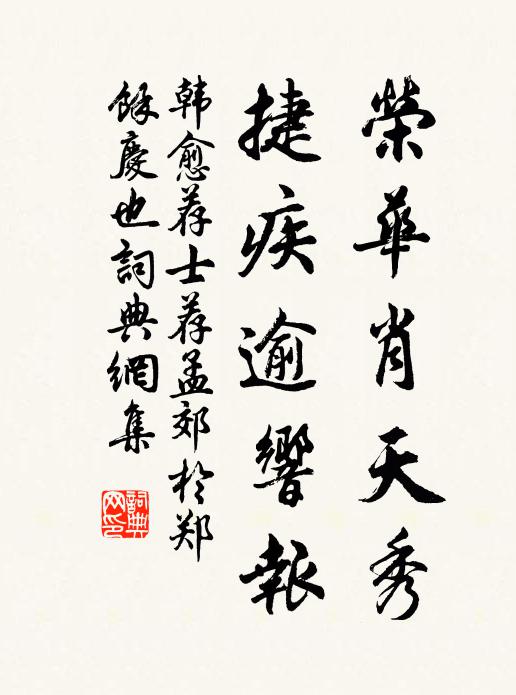 榮華肖天秀
捷疾逾響報
韩愈荐士荐孟郊於郑
餘慶也詞典網集
詞典
网印